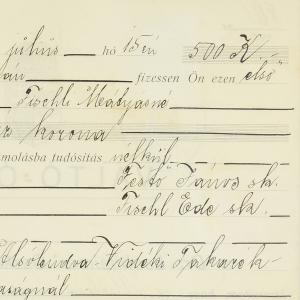 július hó 15én 500 K.-
án fizessen Ön ezen első
Tischl Mátyásné
korona
molásba tudósítás nélkül
Pestő János sk.
Tischl Ede sk.
Alsólendva-Vidéki Takarék-